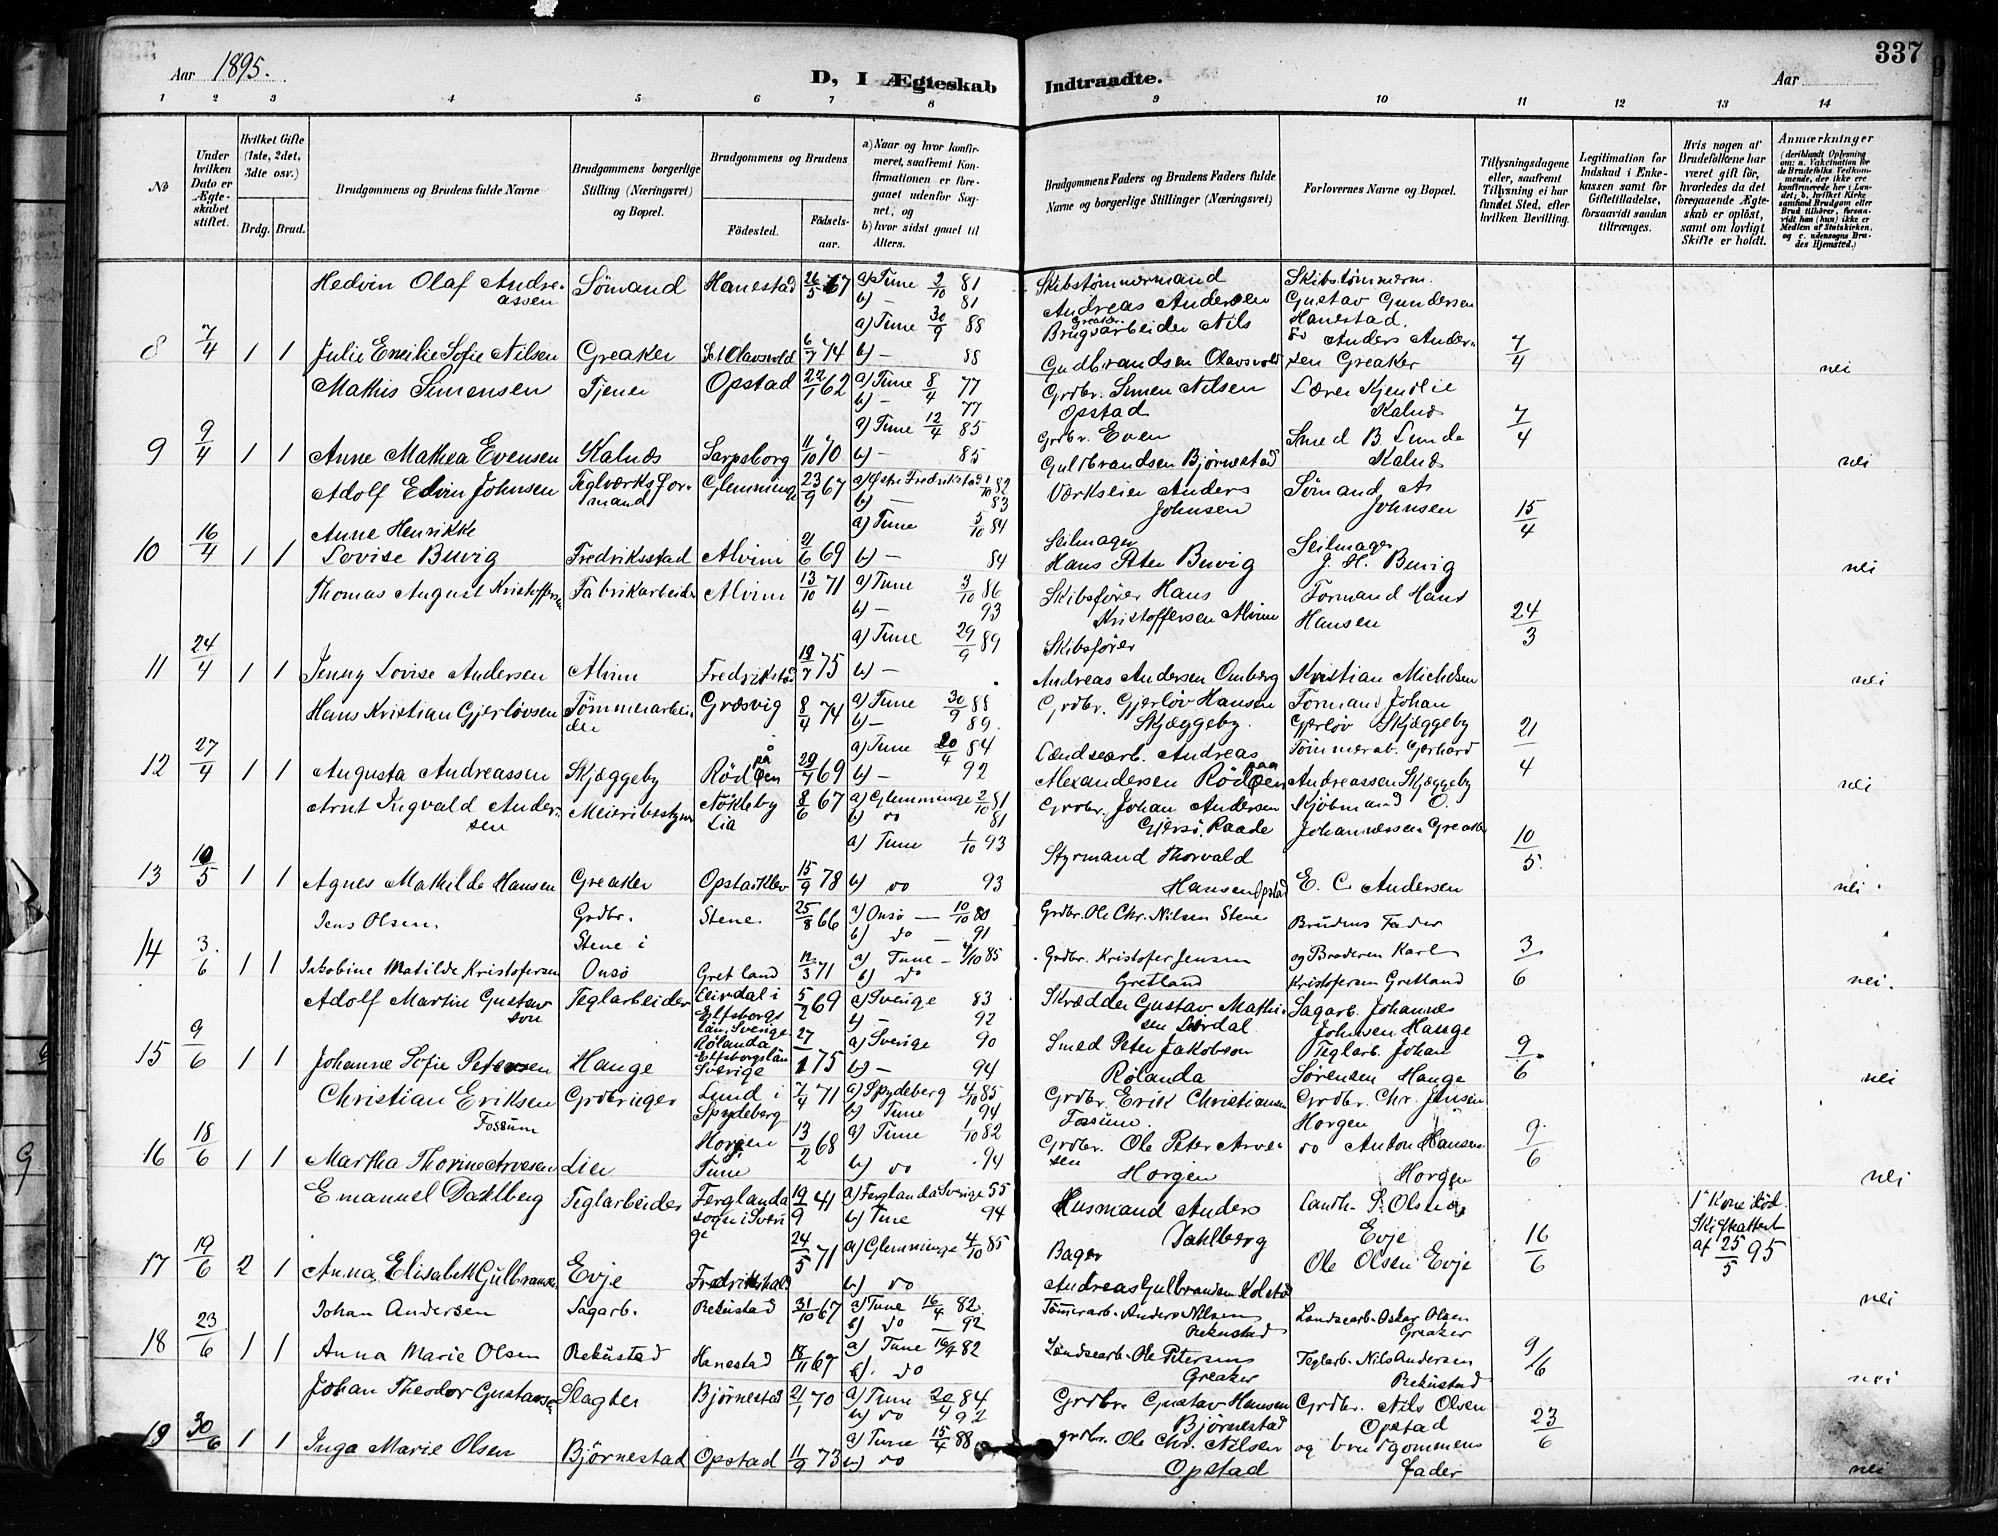 Aar 1895.
D, I Ægteskab Indtraadte.
Aar
337
1 2 3 4 5 6 7 8 9 10 11 12 13 14
No
Under hvilken Dato er Ægteskabet stiftet.
Hvilket Gifte (1ste, 2det, 3dte osv.)
Brdg. Brud.
Brudgommens og Brudens fulde Navne
Brudgommens borgerlige Stilling (Næringsvei) og Bopæl.
Brudgommens og Brudens
Fødested.
Fødselsaar.
a) Naar og hvor konfirmeret, saafremt Konfirmationen er foregaaet udenfor Sognet, og
b) hvor sidst gaaet til Alters.
Brudgommens Faders og Brudens Faders fulde Navne og borgerlige Stillinger (Næringsvei)
Forlovernes Navne og Bopæl.
Tillysningsdagene eller, saafremt Tillysning ei har fundet Sted, efter hvilken Bevilling.
Legitimation for Indskud i Enkekassen samt for Giftetilladelse, forsaavidt saadan tiltrænges.
Hvis nogen af Brudefolkene har været gift før, hvorledes da det foregaaende Ægteskab er opløst, samt om lovligt Skifte er holdt.
Anmærkninger
(deriblandt Oplysning om: a. Vakcination for de Brudefolks Vedkommende, der ikke ere konfirmerede her i Landet; b. hvilket Kirkesamfund Brudgom eller Brud tilhører, forsaavidt han (hun) ikke er Medlem af Statskirken, og c. udensogns Brudes Hjemsted.)
Hedvin Olaf Andreassen Sømand Hanestad 26/5 67 a) Tune 2/10 81 b) - 81 Skibstømmermand Andreas Andersen Skibstømmerm. Gustav Gundersen Hanestad.
8 7/4 1 1 Julie Emilie Sofie Nilsen Greaker St Olavsvold 6/7 74 a) Tune 30/9 88 b) - 88 Brugsarbeider Greaker Nils Gudbrandsen Olavsvold Do Anders Andersen Greaker 7/4 nei
Mathis Simensen Tjener Opstad 22/1 62 a) Tune 8/4 77 b) - 77 Grdbr. Simen Nilsen Opstad Lærer Kjendlie Kalnæs
9 9/4 1 1 Anne Mathea Evensen Kalnæs Sarpsborg 11/10 70 a) Tune 12/4 85 b) - 85 Grdbr. Even Gulbrandsen Bjørnestad Smed B. Lunde Kalnæs 7/4 nei
Adolf Edvin Johnsen Teglværksformand Glemminge 23/9 67 a) Østre Fredrikstad 1/10 82 b) - 83 Værkseier Anders Johnsen Sømand A Johnsen
10 16/4 1 1 Anne Henrikke Lovise Buvig Fredriksstad Alvim 21/6 69 a) Tune 5/10 84 b) - 84 Seilmager Hans Peter Buvig Seilmager J. H. Buvig 15/4 nei
Thomas August Kristoffersen Fabrikarbeider Alvim 13/10 71 a) Tune 3/10 86 b) - 93 Skibsfører Hans Kristoffersen Alvim Formand Hans Hansen
11 24/4 1 1 Jenny Lovise Andersen Alvim Fredrikstad 19/7 75 a) Tune 29/9 89 b) - Skibsfører Andreas Andersen Omberg Kristian Michelsen 24/3 nei
Hans Kristian Gjerløvsen Tømmerarbeider Græsvig 8/4 74 a) Tune 30/9 88 b) - 89. Grdbr. Gjerløv Hansen Skjæggeby. Formand Johan Gjerløv Skjæggeby
12 27/4 1 1 Augusta Andreassen Skjæggeby Rød på Øen 29/7 69 a) Tune 20/4 84 b) - 92 Landsearb. Andreas Alexandersen Rød paa Øen Tømmerab. Gerhard Andreassen Skjæggeby 21/4 nei
Arnt Ingvald Andersen Meieribestyrer Nökleby Lia 8/6 67 a) Glemminge 2/10 81 b) do 81 Grdbr. Johan Andersen Gjersö, Raade Kjøbmand O. Johannessen Greaker
13 10/5 1 1 Agnes Mathilde Hansen Greaker Opstadklev 15/9 78 a) Tune 1/10 93 b) do 93 Styrmand Thorvald Hansen Opstad E. C. Andersen 10/5. nei
Jens Olsen. Grdbr. Stene i Stene. 25/8 66 a) Onsø - 10/10 80 b) do - 91 Grdbr. Ole Chr. Nilsen Stene Brudens Fader
14 3/6 1 1 Jakobine Matilde Kristofersen Onsø Gretland 12/3 71 a) Tune - 4/10 85 b) do Grdbr. Kristofer Jensen Gretland og Broderen Karl Kristofersen Gretland 3/6 nei.
Adolf Martin Gustavson Teglarbeider Elfsborgs län, Sverige 5/2 69 a) Sverige 83 b) - 92 Skrædder Gustav Mathisen Sagarb. Johannes Johnsen Hauge
15 9/6 1 1 Johanne Sofie Petersen Hauge Rølanda Elfsborgslän Sverige 27/1 75 a) Sverige 90 b) - 94 Smed Peter Jakobson Rølanda Teglarb. Johan Sørensen Hauge 9/6 nei
Christian Eriksen Fossum Grdbruger Lund i Spydeberg 7/4 71 a) Spydeberg 4/10 85 b) Tune 94 Grdbr. Erik Christiansen Fossum. Grdbr. Chr. Jensen Horgen
16 18/6 1 1 Martha Thorine Arvesen Lier Horgen i Tune 13/2 68 a) Tune 1/10 82 b) do 94 Grdbr. Ole Peter Arvesen Horgen do Anton Hansen Horgen 9/6 nei
Emanuel Dahlberg Teglarbeider Ferglanda sogn i Sverige 19/9 41 a) Ferglanda Sverige 55 b) Tune 94 Husmand Anders Dahlberg Landh. S. Olsen Evje 1ste Kone død. Skifteattest af 25/5 95
17 19/6 2 1 Anna Elisabeth Gulbransen Evje Fredrikshald 24/5 71 a) Glemminge 4/10 85 b) do Bager Andreas Gulbrandsen Kolstad Ole Olsen Evje 16/6 nei
Johan Andersen Sagarb. Rekustad 31/10 67 a) Tune 16/4 82. b) do - 92 Tømerarb. Anders Nilsen Rekustad Landsearb. Oskar Olsen Greaker
18 23/6 1 1 Anna Marie Olsen Rekustad Hanestad 18/11 67 a) Tune 16/4 82 b). do Landsearb. Ole Petersen Greaker Teglarb. Nils Andersen Rekustad 9/6 nei
Johan Theodor Gustavsen Slagter Bjørnestad 21/1 70 a) Tune 20/4 84 b) do 92 Grdbr. Gustav Hansen Bjørnestad Grdbr. Nils Olsen Opstad
19 30/6 1 1 Inga Marie Olsen Bjørnestad Opstad 11/9 73 a) Tune 15/4 88 b) do grdbr. Ole Chr. Nilsen Opstad og brudgommens Fader 23/6 nei